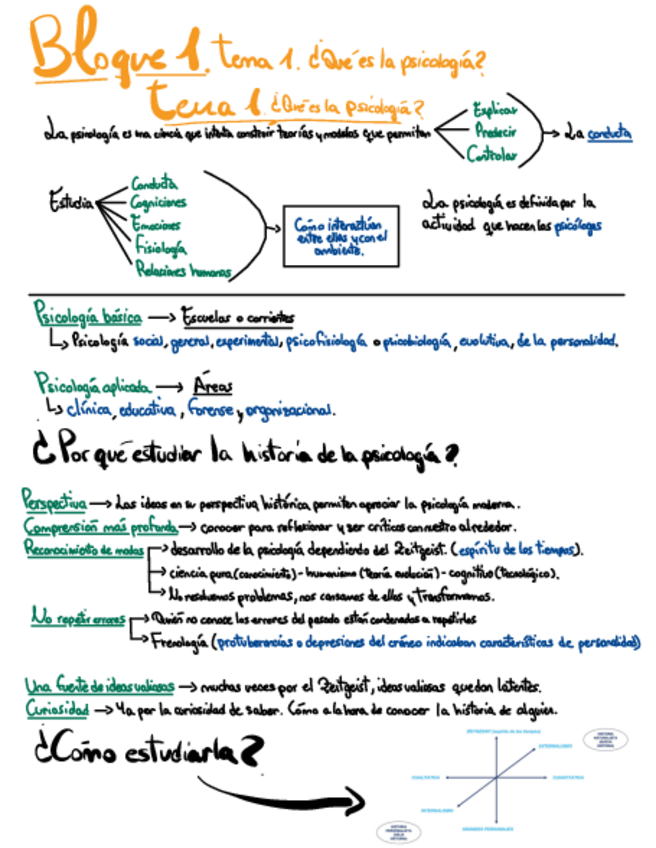 Bloque 1. tema 1. ¿Qué es la psicología?
Tema 1. ¿Qué es la psicología?
La psicología es una ciencia que intenta construir teorías y modelos que permiten
Explicar
Predecir
Controlar
La conducta
Estudia
Conducta
Cogniciones
Emociones
Fisiología
Relaciones humanas
Cómo interactúan
entre ellas y con el
ambiente.
La psicología es definida por la
actividad que hacen los psicólogos
Psicología básica → Escuelas o corrientes
Psicología social, general, experimental, psicofisiología o psicobiología, evolutiva, de la personalidad.
Psicología aplicada → Áreas
clínica, educativa, forense y organizacional.
¿Por qué estudiar la historia de la psicología?
Perspectiva → Las ideas en su perspectiva histórica permiten apreciar la psicología moderna.
Comprensión más profunda → conocer para reflexionar y ser críticos con nuestro alrededor.
Reconocimiento de modas → desarrollo de la psicología dependiendo del Zeitgeist. (espíritu de los tiempos).
→ ciencia pura (conocimiento) - humanismo (teoría evolución) - cognitivo (tecnológico).
→ No resolvemos problemas, nos cansamos de ellos y transformamos.
No repetir errores → Quién no conoce los errores del pasado están condenados a repetirlos
→ Frenología (protuberancias o depresiones del cráneo indicaban características de personalidad)
Una fuente de ideas valiosas → muchas veces por el Zeitgeist, ideas valiosas quedan latentes.
Curiosidad → Ya por la curiosidad de saber. Cómo a la hora de conocer la historia de alguien.
¿Cómo estudiarla?
ZEITGEIST (espíritu de los tiempos)
EXTERNALISMO
CUALITATIVA
CUANTITATIVA
INTERNALISMO
GRANDES PERSONAJES
HISTORIA
NATURALISTA
NUEVA
HISTORIA
HISTORIA
PERSONALISTA
VIEJA
HISTORIA